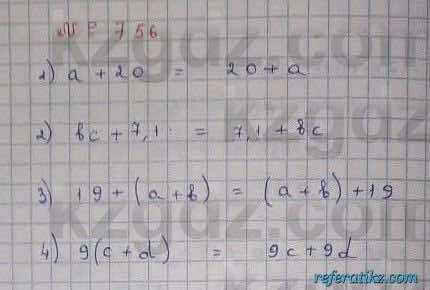 № 756
1) a + 20 = 20 + a
2) bc + 7,1 = 7,1 + bc
3) 19 + (a + b) = (a + b) + 19
4) 9(c + d) = 9c + 9d
referatikz.com